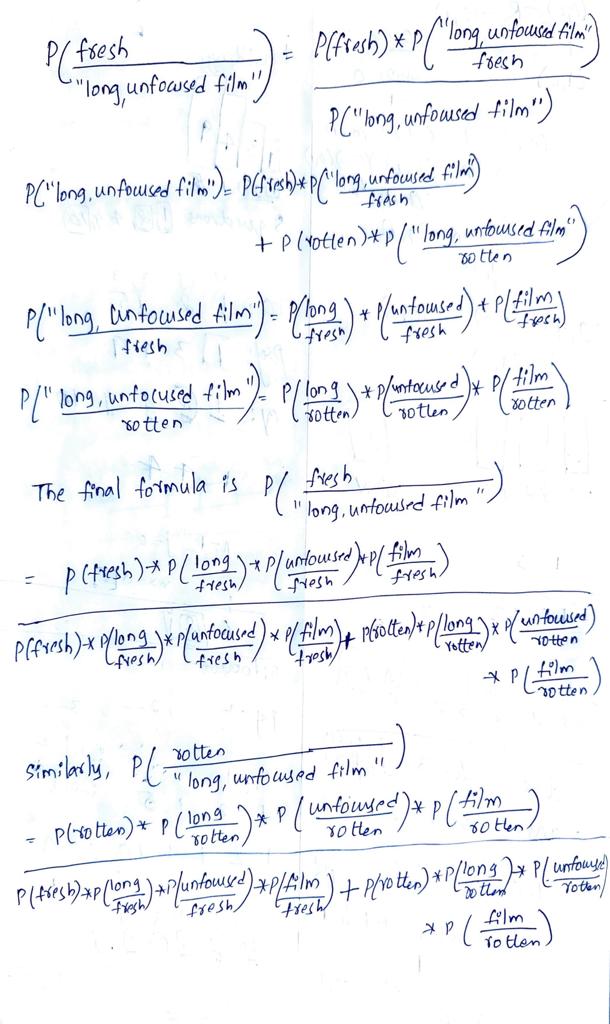 P( fresh / "long, unfocused film" ) = P(fresh) * P( "long, unfocused film" / fresh ) / P("long, unfocused film")
P("long, unfocused film") = P(fresh) * P( "long, unfocused film" / fresh )
+ P(rotten) * P( "long, unfocused film" / rotten )
P( "long, unfocused film" / fresh ) = P( long / fresh ) * P( unfocused / fresh ) * P( film / fresh )
P( "long, unfocused film" / rotten ) = P( long / rotten ) * P( unfocused / rotten ) * P( film / rotten )
The final formula is P( fresh / "long, unfocused film" )
= P(fresh) * P( long / fresh ) * P( unfocused / fresh ) * P( film / fresh )
P(fresh) * P( long / fresh ) * P( unfocused / fresh ) * P( film / fresh ) + P(rotten) * P( long / rotten ) * P( unfocused / rotten )
* P( film / rotten )
Similarly, P( rotten / "long, unfocused film" )
= P(rotten) * P( long / rotten ) * P( unfocused / rotten ) * P( film / rotten )
P(fresh) * P( long / fresh ) * P( unfocused / fresh ) * P( film / fresh ) + P(rotten) * P( long / rotten ) * P( unfocused / rotten )
* P( film / rotten )